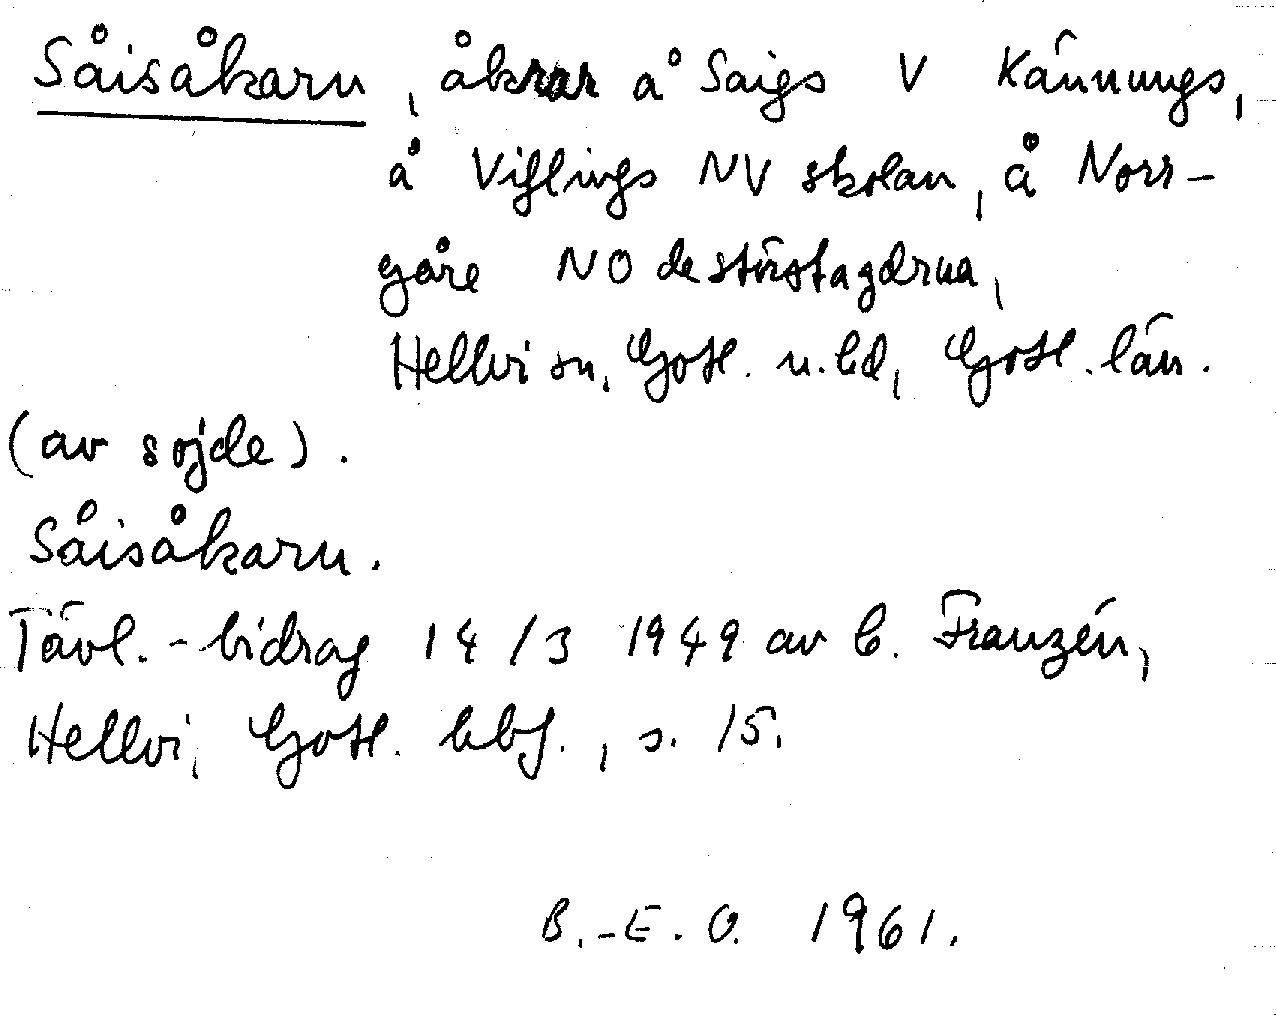 Såisåkaru, åkrar å Saigs V Kännungs,
å Viflings NV skolan, å Norr-
gåre NO de störstagdrna,
Hellvi sn, Gotl. n. hd, Gotl. län.
(av sojde).
Såisåkaru.
Tävl.-bidrag 14/3 1949 av C. Franzén,
Hellvi, Gotl. hbf., s. 15.
B.-E. O. 1961.